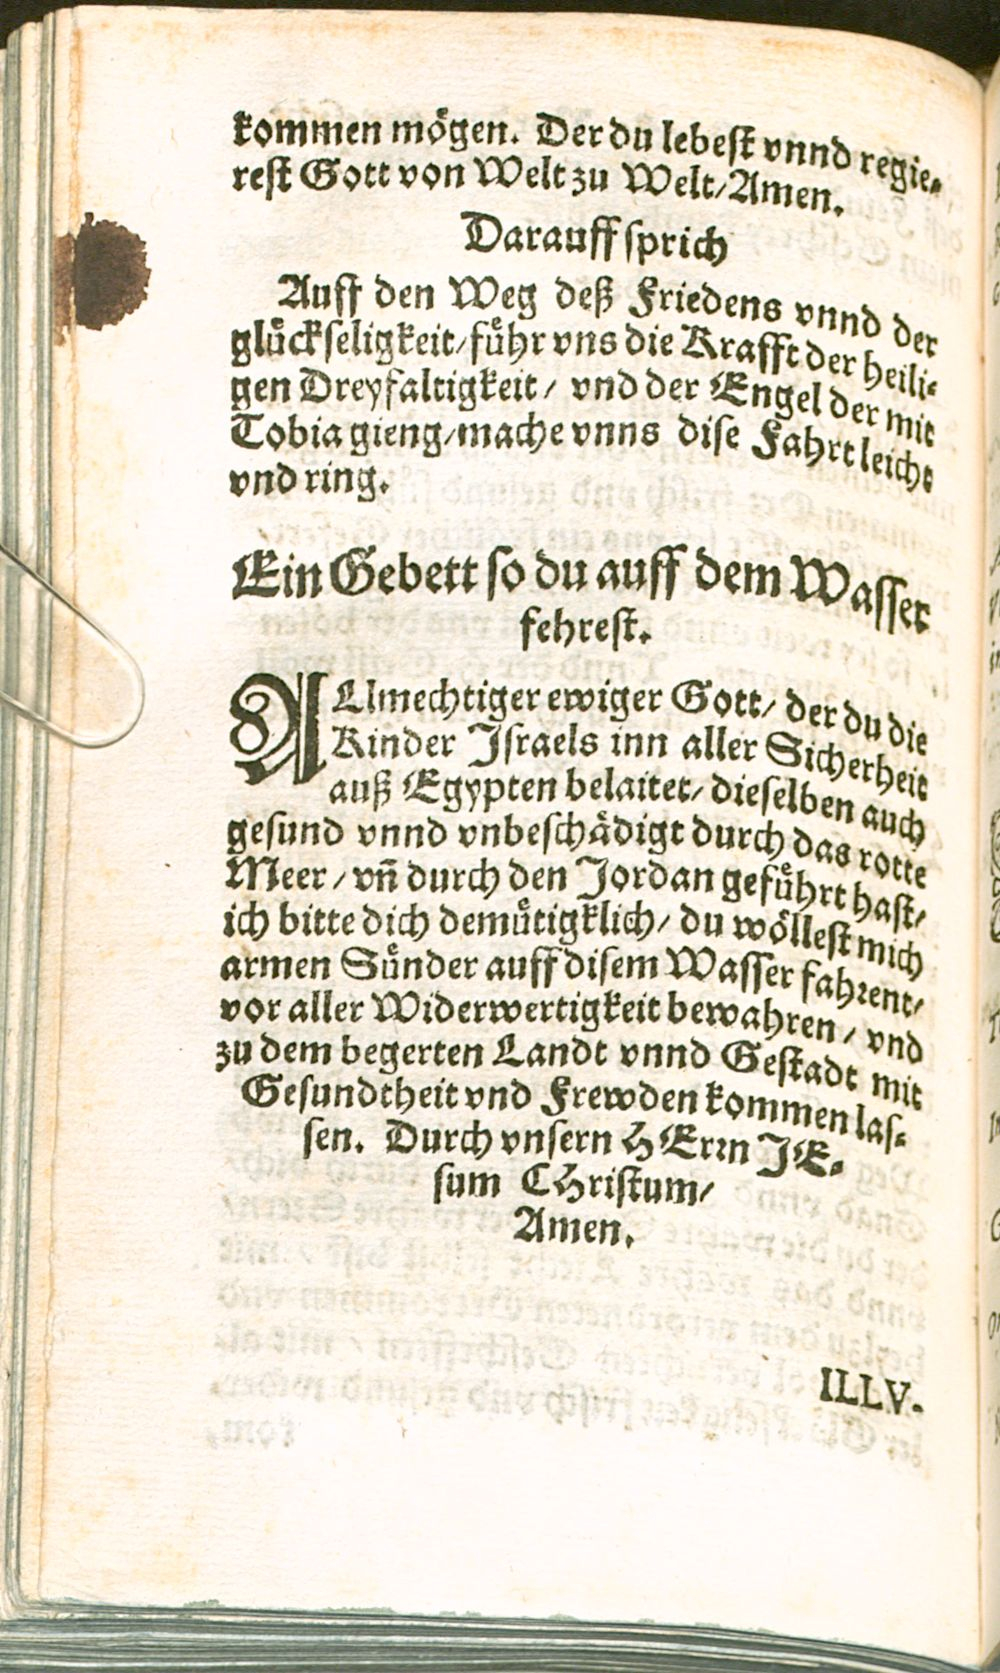 kommen mögen. Der du lebest vnnd regie-
rest Gott von Welt zu Welt/Amen.
Darauff sprich
Auff den Weg deß Friedens vnnd der
glückseligkeit/führ vns die Krafft der heili-
gen Dreyfaltigkeit/ vnd der Engel der mit
Tobia gieng/mache vnns dise Fahrt leicht
vnd ring.
Ein Gebett so du auff dem Wasser
fehrest.
ALlmechtiger ewiger Gott/ der du die
Kinder Israels inn aller Sicherheit
auß Egypten belaitet/ dieselben auch
gesund vnnd vnbeschädigt durch das rotte
Meer/ vn̄ durch den Jordan geführt hast/
ich bitte dich demütigklich/ du wöllest mich
armen Sünder auff disem Wasser fahrent/
vor aller Widerwertigkeit bewahren/ vnd
zu dem begerten Landt vnnd Gestadt mit
Gesundtheit vnd Frewden kommen las-
sen. Durch vnsern HErrn JE-
sum CHristum/
Amen.
ILLV-